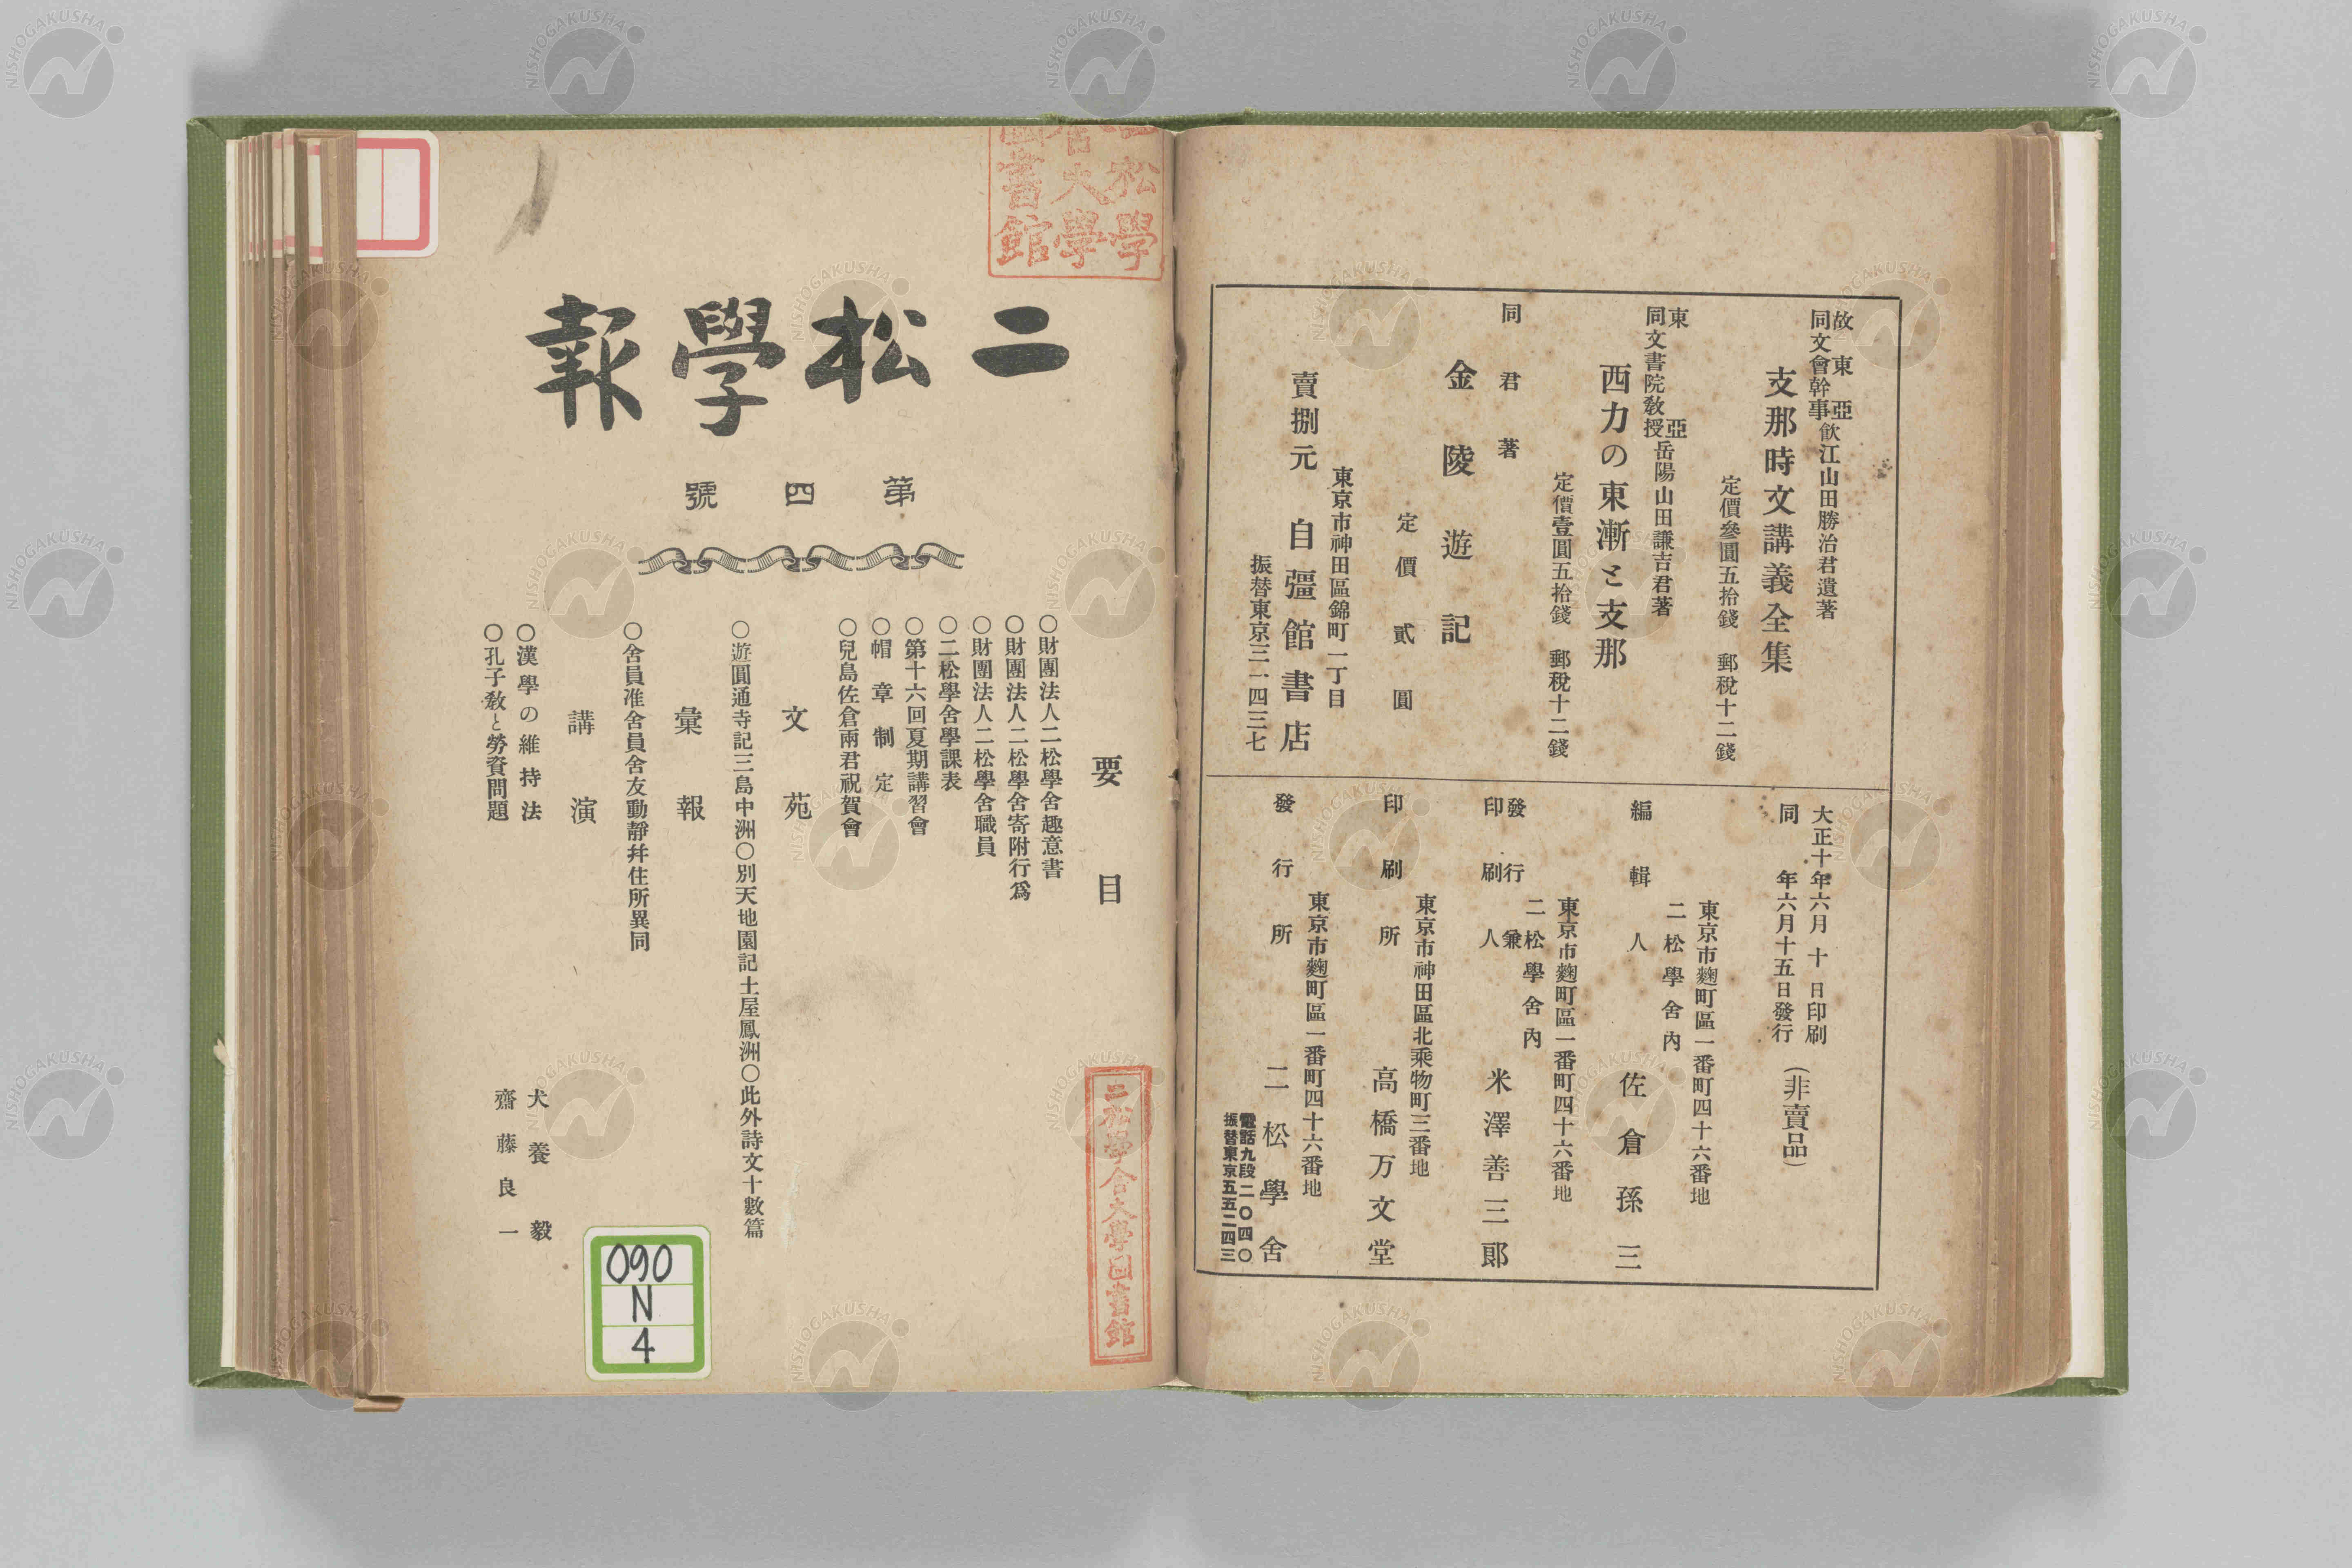 故東亞同文會幹事 飮江山田勝治君遺著
支那時文講義全集
定價參圓五拾錢 郵稅十二錢
東亞同文書院教授 岳陽山田謙吉君著
西力の東漸と支那
定價壹圓五拾錢 郵稅十二錢
同君著
金陵遊記
定價貳圓
東京市神田區錦町一丁目
賣捌元 自彊館書店
振替東京三一四三七
大正十年六月十日印刷
同年六月十五日發行
(非賣品)
東京市麴町區一番町四十六番地
二松學舍內
編輯人 佐倉孫三
東京市麴町區一番町四十六番地
二松學舍內
發行兼印刷人 米澤善三郎
東京市神田區北乘物町三番地
印刷所 高橋万文堂
東京市麴町區一番町四十六番地
發行所 二松學舍
電話九段二〇四〇
振替東京五五二四三
二松學舍大學圖書館
二松學報
第四號
要目
〇財團法人二松學舍趣意書
〇財團法人二松學舍寄附行爲
〇財團法人二松學舍職員
〇二松學舍學課表
〇第十六回夏期講習會
〇帽章制定
〇兒島佐倉兩君祝賀會
文苑
〇遊圓通寺記三島中洲〇別天地園記土屋鳳洲〇此外詩文十數篇
彙報
〇舍員准舍員舍友動靜幷住所異同
講演
〇漢學の維持法 犬養毅
〇孔子敎と勞資問題 齋藤良一
二松學舍大學圖書館
090
N
4
NISHOGAKUSHA